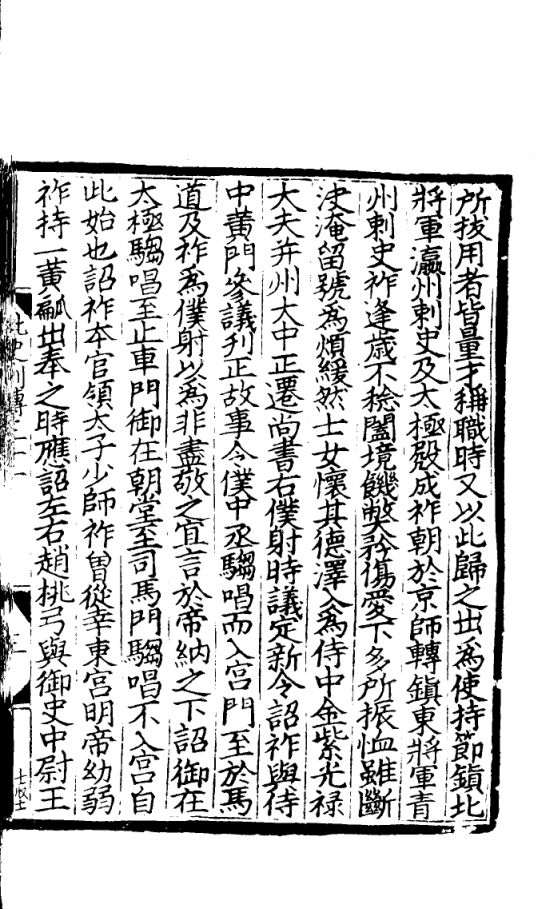 所拔用者皆量才稱職時又以此歸之出爲使持節鎮北
將軍瀛州刺史及太極殿成祚朝於京師轉鎮東將軍青
州刺史祚逢歲不稔闔境饑弊矜傷愛下多所振恤雖斷
決淹留號為煩緩然士女懷其德澤入為侍中金紫光禄
大夫并州大中正遷尚書右僕射時議定新令詔祚與侍
中黄門參議刋正故事令僕中丞騶唱而入宫門至於馬
道及祚爲僕射以為非盡敬之宜言於帝納之下詔御在
太極騶唱至止車門御在朝堂至司馬門騶唱不入宫自
此始也詔祚本官領太子少師祚曽從幸東宫明帝幼弱
祚持一黄㼐出奉之時應詔左右趙桃弓與御史中尉王
北史列傳三十一